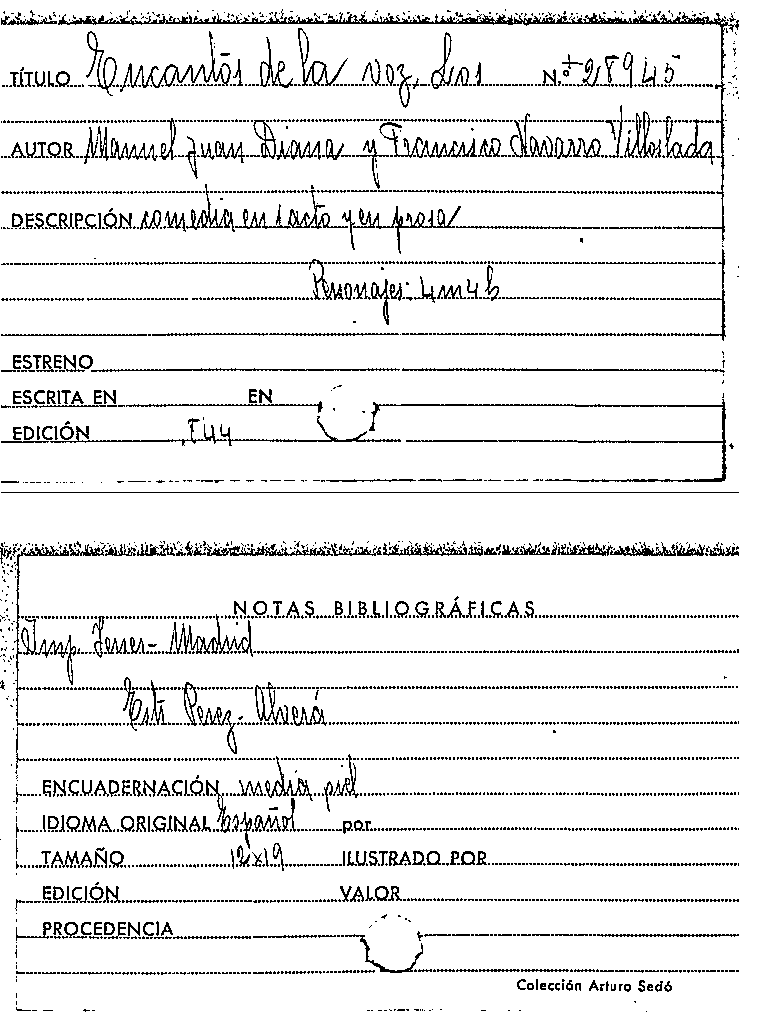 TÍTULO Encantos de la voz, Los N.º 28945
AUTOR Manuel Juan Diana y Francisco Navarro Villoslada
DESCRIPCIÓN comedia en 1 acto y en prosa
Personajes: 4m 4h
ESTRENO
ESCRITA EN EN
EDICIÓN 844
NOTAS BIBLIOGRÁFICAS
Imp. - Madrid
Perez-
ENCUADERNACIÓN media piel
IDIOMA ORIGINAL Español por
TAMAÑO 12x19 ILUSTRADO POR
EDICIÓN VALOR
PROCEDENCIA
Colección Arturo Sedó